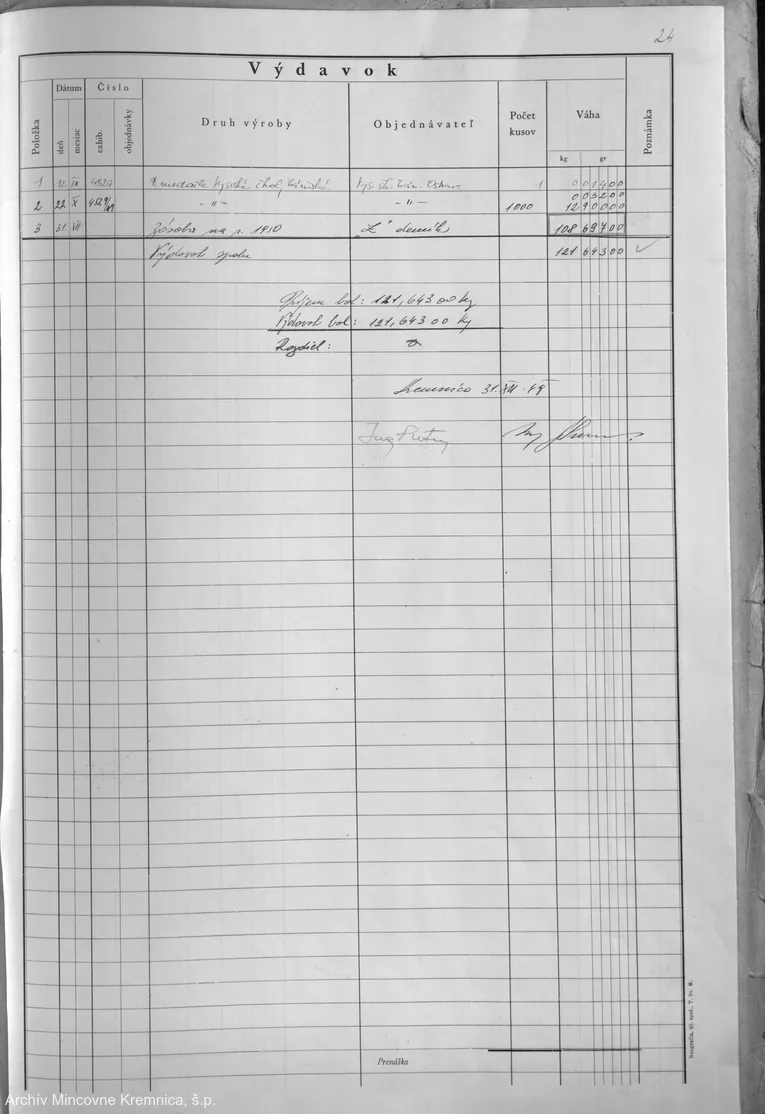 24
Výdavok
Položka
Dátum
deň
mesiac
Číslo
exhib.
objednávky
Druh výroby
Objednávateľ
Počet kusov
Váha
kg
gr
Poznámka
1 12. IX 4529 medaile Vysoké školy báňské Vys. šk. báň. Ostrava 1 0 001400
0 03200
2 22. X 4529/49 - " - - " - 1000 12 90000
3 31. XII Zásoba na r. 1950 "Z" denník 108 69700
Výdavok spolu 121 64300
Príjem bol: 121,64300 kg
Výdavok bol: 121,64300 kg
Rozdiel: 0
Kremnica 31. XII. 49
Ing
Prenáška
Neografia, úč. spol., T. Sv. M.
Archív Mincovne Kremnica, š.p.